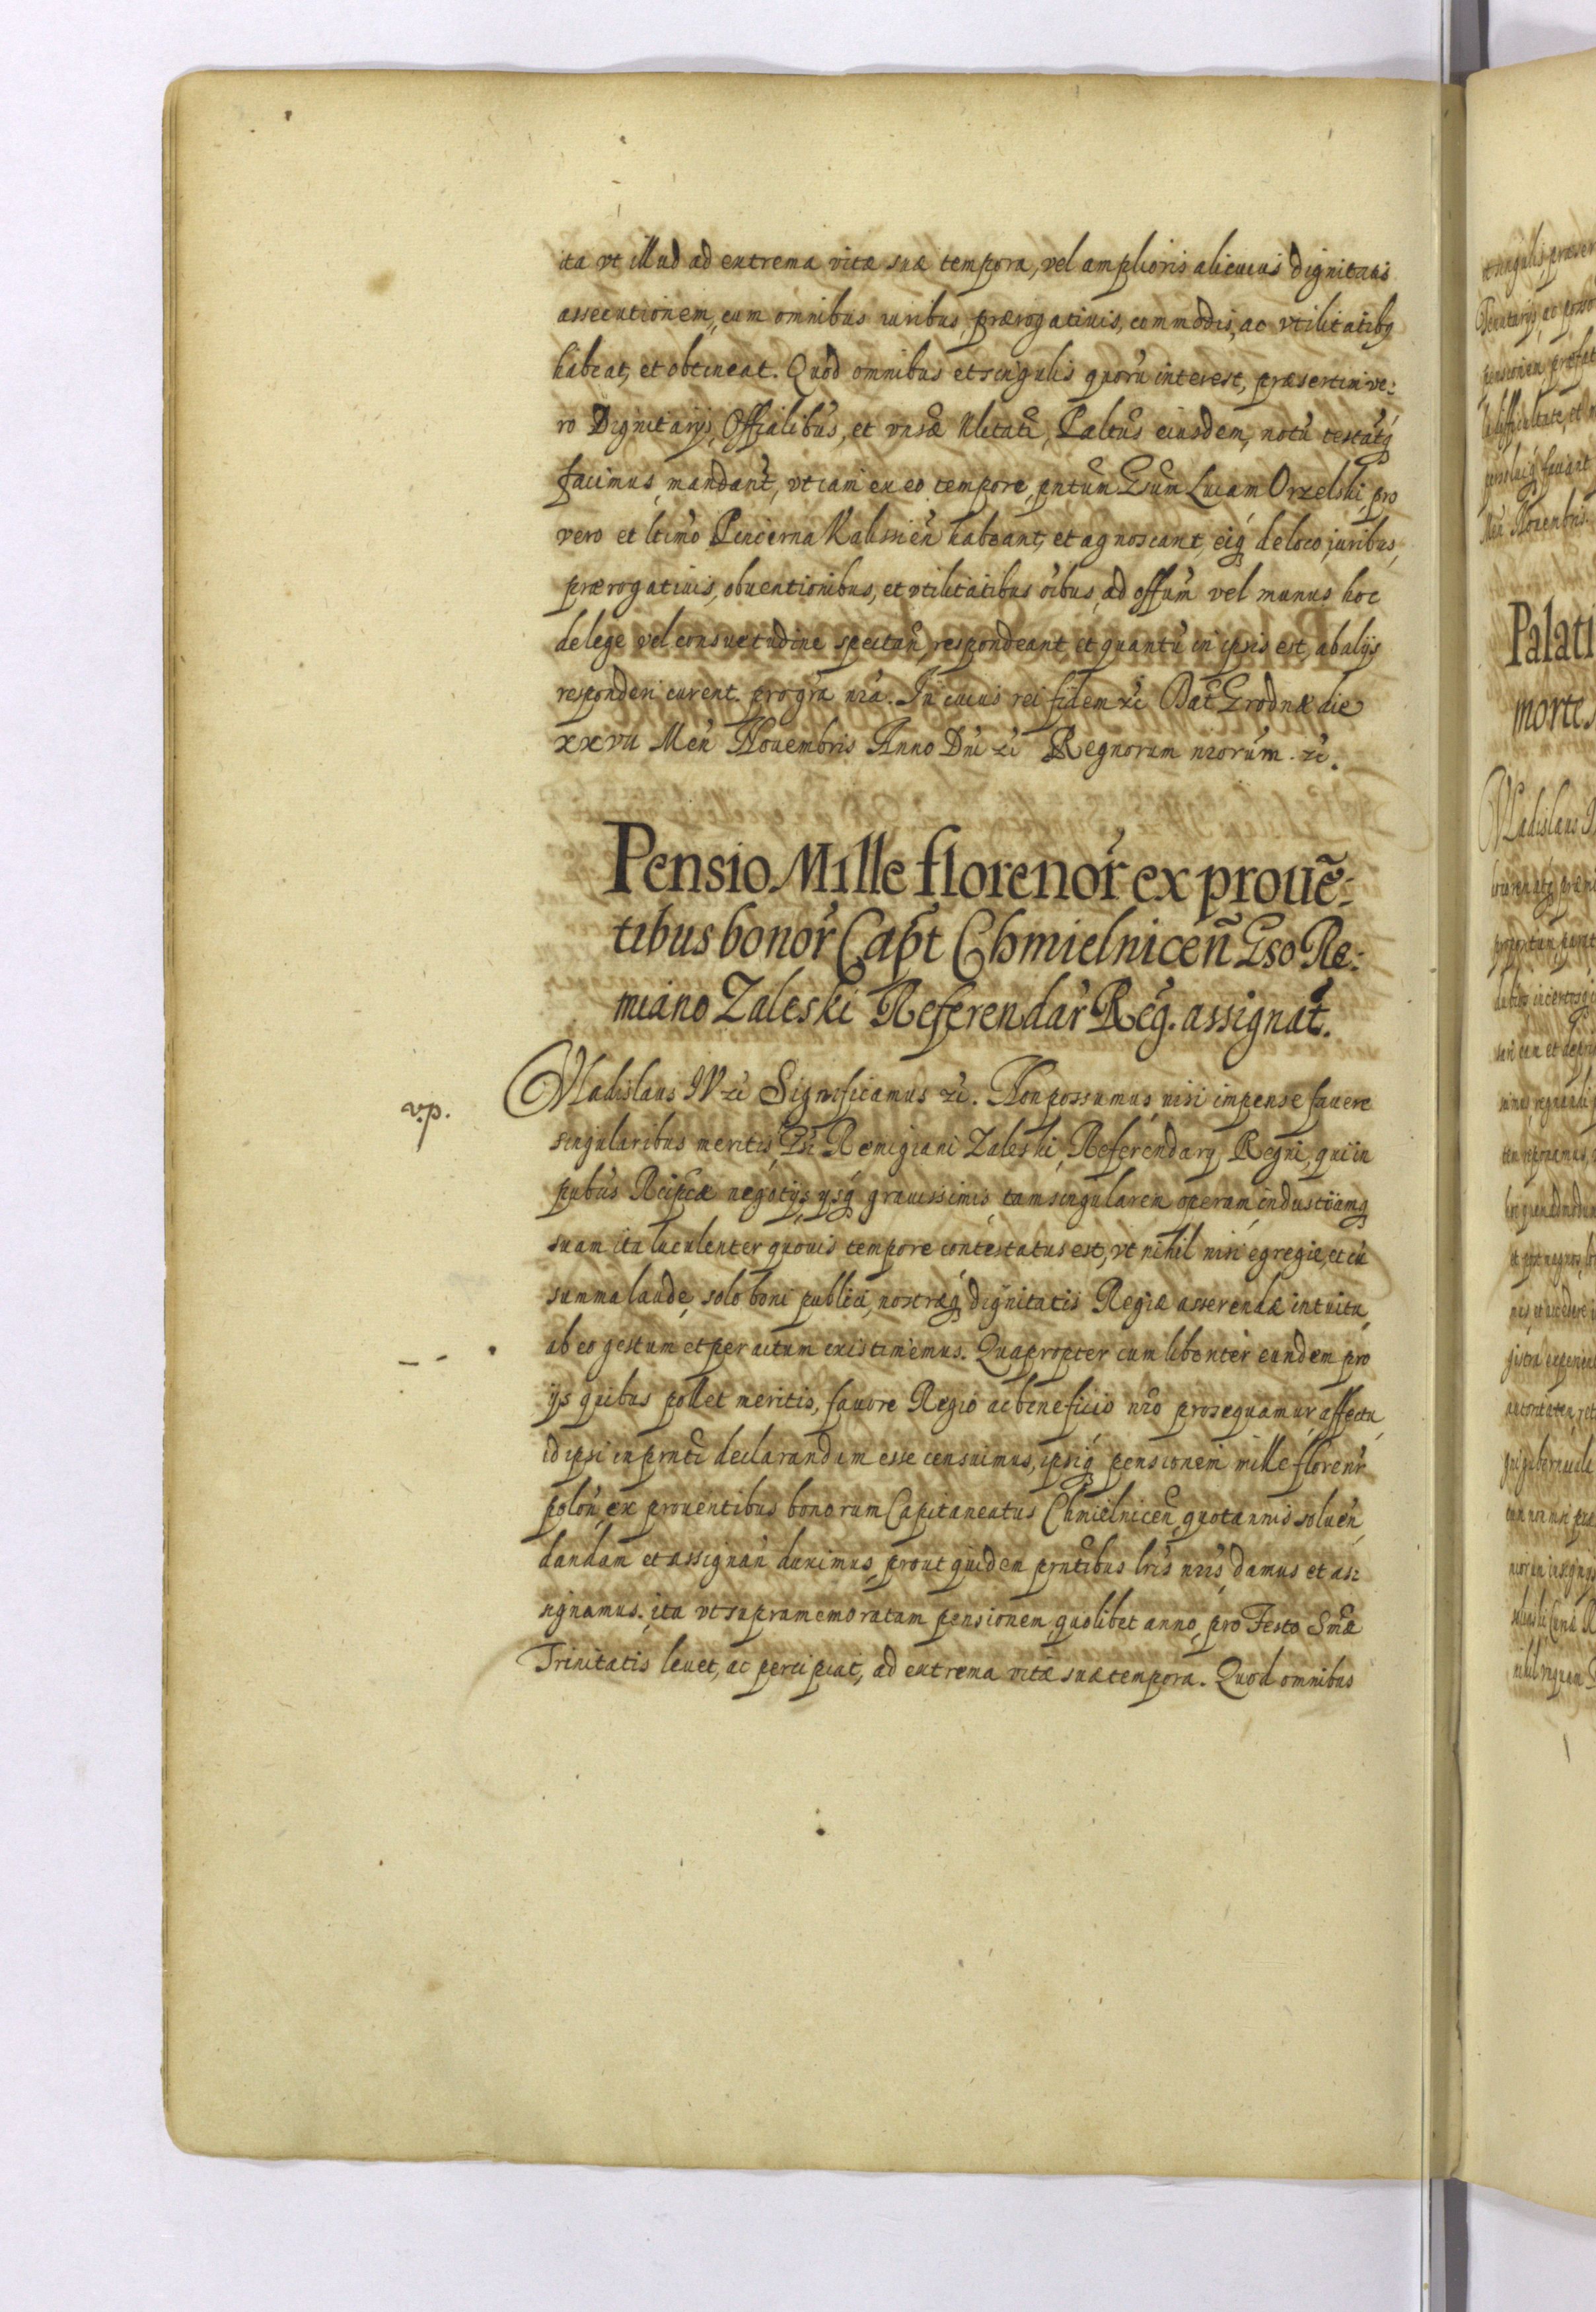 ita vt illud ad extrema vitæ suæ tempora, vel amplioris alicuius dignitatis
assecutionem, cum omnibus iuribus, prærogatiuis, commodis, ac vtilitatibq
habeat, et obtineat. Quod omnibus et singulis quorũ interest, præsertim ve:
ro Dignitarijs, Offialibus, et vnsæ Nlitati, Paltus eiusdem, notũ testatq
facimus, mandant, vt iam ex eo tempore, pntum Gsum Lucam Orzelski, pro
vero et ltimo Pincerna Kalissien habeant, et agnoscant, eiq de loco, iuribus,
prærogatiuis, obuentionibus, et vtilitatibus oibus, ad offum vel munus hoc
de lege vel consuetudine spectan, respondeant, et quantũ in ipsis est, ab alijs
responderi curent. pro gra nra. In cuius rei fidem zc Dat Grodnæ die
xxvii Men Nouembris Anno Dni zc Regnorum nrorum. zc.
Pensio Mille florenor ex prouẽ:
tibus bonor Capt Chmielnicen̄ Gso Re:
miano Zaleski Referendar Reg. assignat.
v.p.
Vladislaus IV zc Significamus zc. Non possumus, nisi impense fauere
singularibus meritis, Gsi Remigiani Zaleski, Referendarij Regni, qui in
pubus Reipcæ negotijs, ijsq grauissimis, tam singularem operam, industriamq
suam ita luculenter quouis tempore contestatus est, vt nihil nisi egregie, et cũ
summa laude, solo boni publici, nostræq dignitatis Regiæ asserendæ intuitu,
ab eo gestum et peractum existimemus. Quapropter cum libenter eundem pro
ijs quibus pollet meritis, fauore Regio ac beneficio nro prosequamur, affectũ
id ipsi in prnti declarandum esse censuimus, ipsiq pensionem mille florenr
polon, ex prouentibus bonorum Capitaneatus Chmielnicen, quotannis soluen,
dandam et assignan duximus, prout quidem prntibus lris nris, damus et as:
signamus. ita vt supramemoratam pensionem, quolibet anno, pro Festo Smæ
Trinitatis leuet, ac percipiat, ad extrema vitæ suæ tempora. Quod omnibus
Palati
mortes